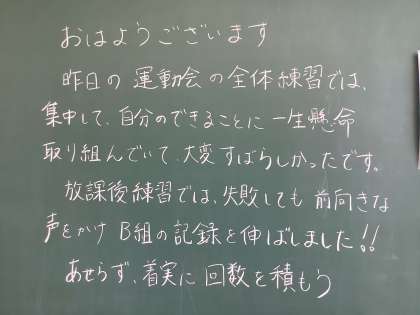 おはようございます
昨日の運動会の全体練習では、
集中して、自分のできることに一生懸命
取り組んでいて、大変すばらしかったです。
放課後練習では、失敗しても前向きな
声をかけB組の記録を伸ばしました!!
あせらず、着実に回数を積もう